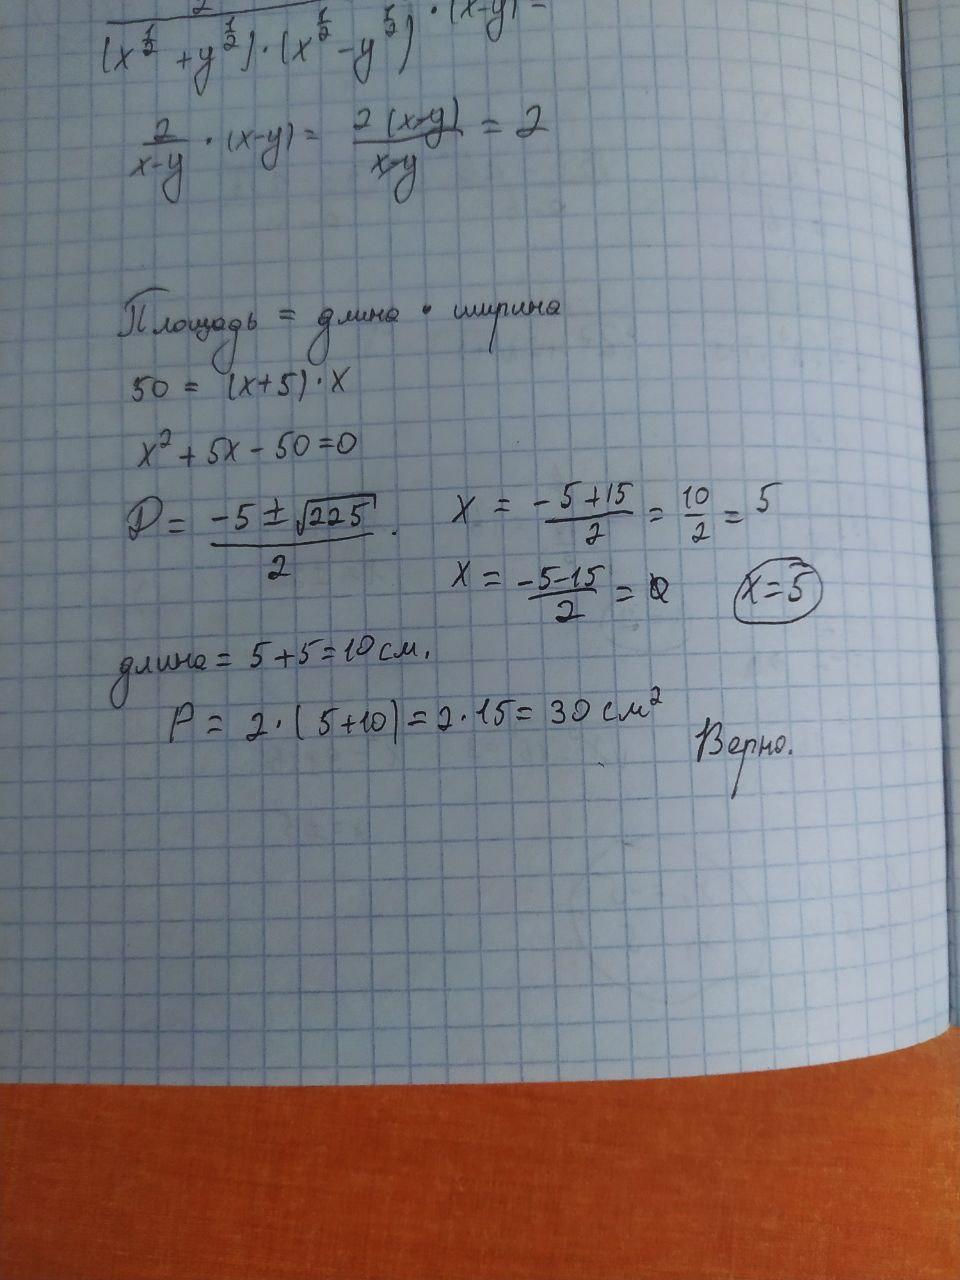 2
(x^½ + y^½) · (x^½ - y^½) · (x-y) =
2/(x-y) · (x-y) = 2(x-y)/(x-y) = 2
Площадь = длина · ширина
50 = (x+5) · x
x² + 5x - 50 = 0
D = (-5 ± √225)/2 . x = (-5+15)/2 = 10/2 = 5
x = (-5-15)/2 = x=5
длина = 5+5=10 см.
P = 2·(5+10) = 2·15 = 30 см²
Верно.